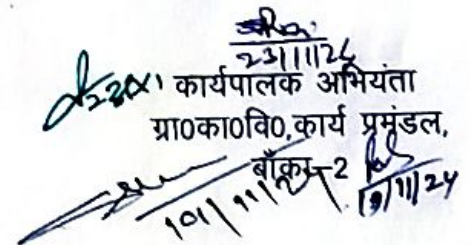 23/11/24
कार्यपालक अभियंता
ग्रा0का0वि0,कार्य प्रमंडल,
बाँका-2
19/11/24